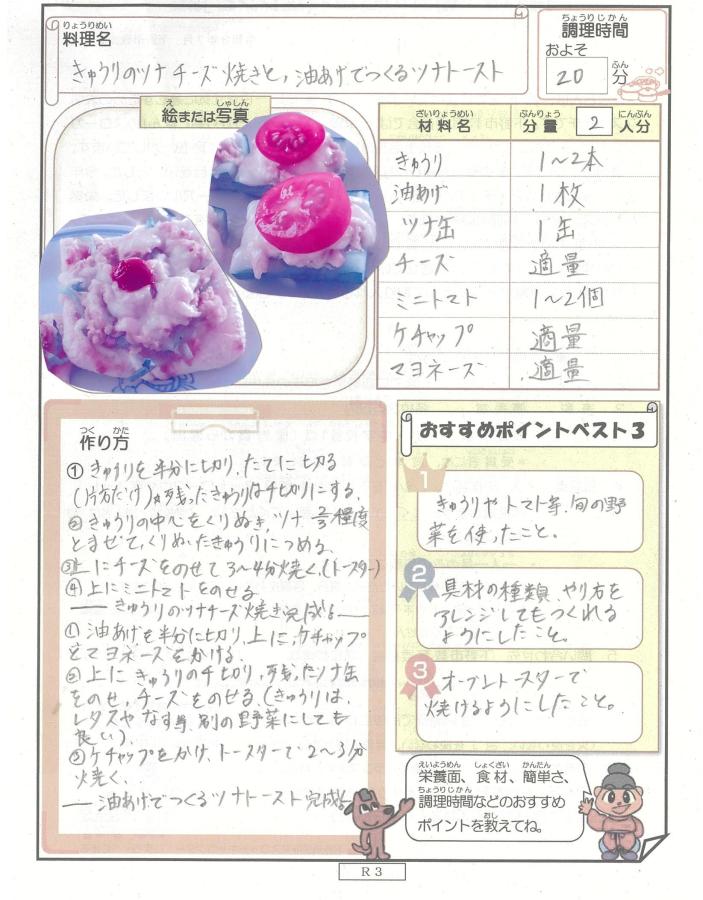 料理名
きゅうりのツナチーズ焼きと,油あげでつくるツナトースト
調理時間
およそ
20分
絵または写真
材料名 分量 2人分
きゅうり 1〜2本
油あげ 1枚
ツナ缶 1缶
チーズ 適量
ミニトマト 1〜2個
ケチャップ 適量
マヨネーズ 適量
作り方
①きゅうりを半分に切り,たてに切る
(片方だけ)残ったきゅうりは千切りにする。
②きゅうりの中心をくりぬき,ツナ 程度
とまぜて,くりぬいたきゅうりにつめる。
③上にチーズをのせて3〜4分焼く。(トースター)
④上にミニトマトをのせる
― きゅうりのツナチーズ焼き完成!―
①油あげを半分に切り,上に,ケチャップ
とマヨネーズをかける。
②上にきゅうりの千切り,残ったツナ缶
をのせ,チーズをのせる(きゅうりは,
レタスやなす等,別の野菜にしても
良い)。
③ケチャップをかけ,トースターで2〜3分
焼く。
― 油あげでつくるツナトースト完成!―
おすすめポイントベスト3
1
きゅうりやトマト等,旬の野
菜を使ったこと。
2
具材の種類,やり方を
アレンジしてもつくれる
ようにしたこと。
3
オーブントースターで
焼けるようにしたこと。
栄養面、食材、簡単さ、
調理時間などのおすすめ
ポイントを教えてね。
R3